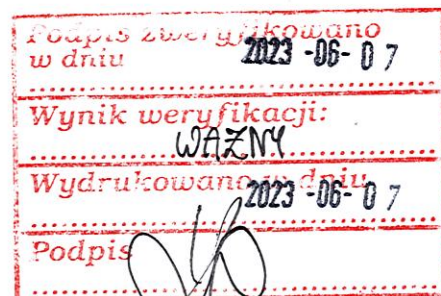 Podpis zweryfikowano
w dniu 2023 -06- 07
Wynik weryfikacji:
WAŻNY
Wydrukowano w dniu
2023 -06- 07
Podpis